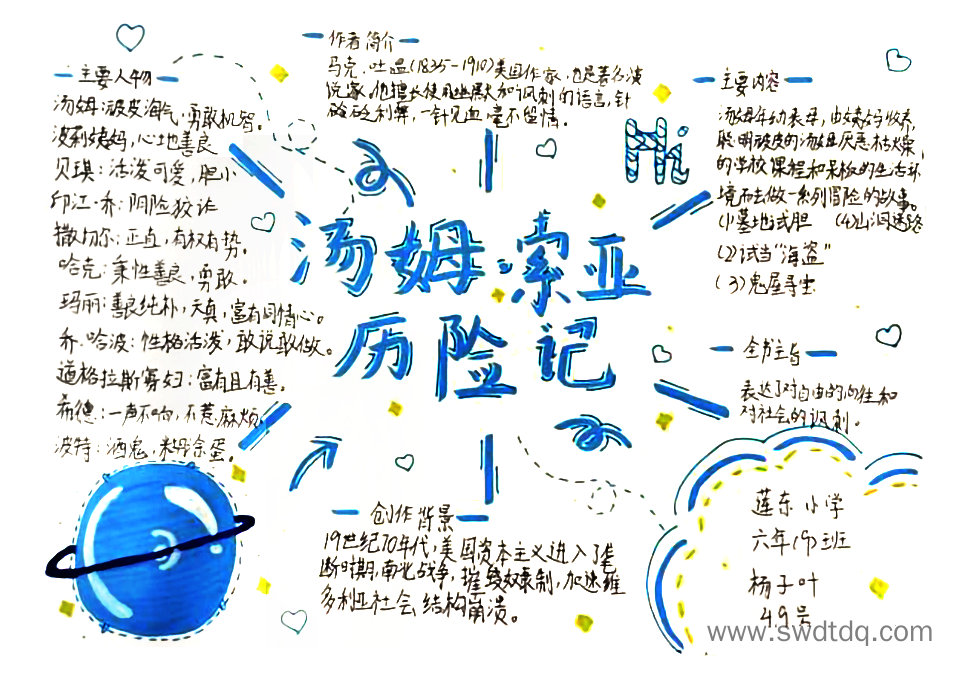 主要人物
汤姆:顽皮淘气,勇敢机智。
波莉姨妈,心地善良
贝琪:活泼可爱,胆小
印江·乔:阴险狡诈
撒切尔:正直,有权有势。
哈克:秉性善良,勇敢。
玛丽:善良纯朴,天真,富有同情心。
乔·哈波:性格活泼,敢说敢做。
道格拉斯寡妇:富有且有善。
希德:一声不响,不惹麻烦
波特:酒鬼,糊涂蛋。
作者简介
马克·吐温(1835-1910)美国作家,也是著名演
说家,他擅长使用幽默和讽刺的语言,针
砭时弊,一针见血毫不留情。
Hi
主要内容
汤姆年幼丧母,由姨妈收养,
聪明顽皮的汤姆厌恶枯燥,
的学校课程和呆板的生活环
境而去做一系列冒险的故事。
(1)墓地试胆 (4)山洞迷路
(2)试当"海盗"
(3)鬼屋寻宝
汤姆·索亚
历险记
全书主旨
表达了对自由的向往和
对社会的讽刺。
创作背景
19世纪70年代,美国资本主义进入了垄
断时期,南北战争,摧毁奴隶制,加速维
多利亚社会结构崩溃。
莲东小学
六年(9)班
杨子叶
49号
www.swdtdq.com